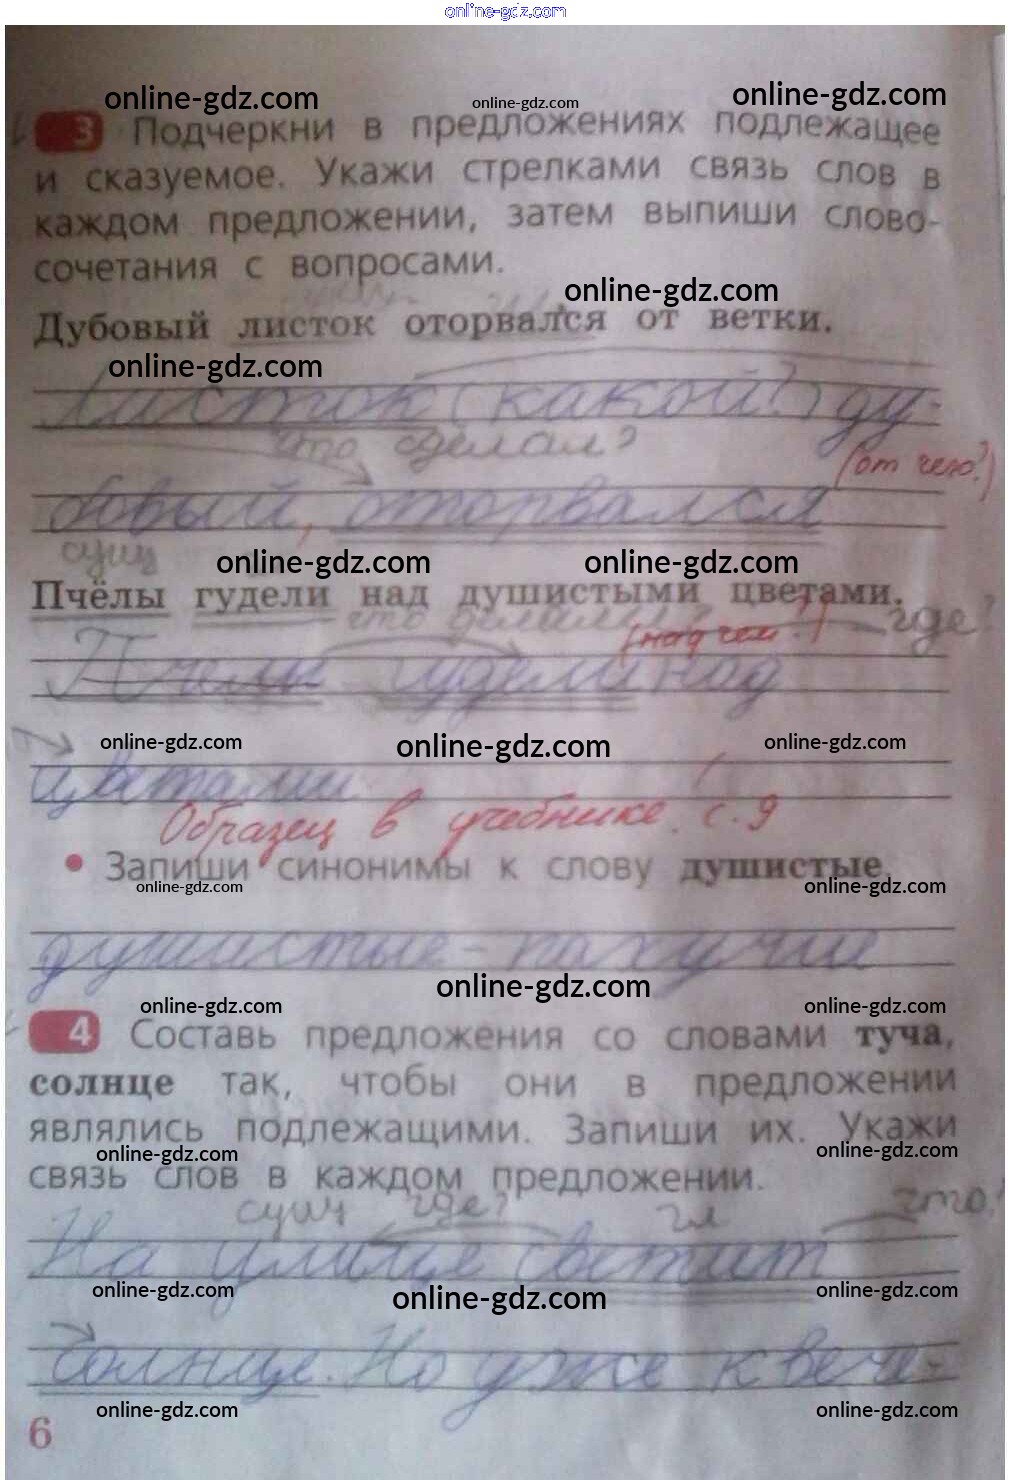 online-gdz.com
online-gdz.com online-gdz.com online-gdz.com
3 Подчеркни в предложениях подлежащее
и сказуемое. Укажи стрелками связь слов в
каждом предложении, затем выпиши слово-
сочетания с вопросами.
online-gdz.com
Дубовый листок оторвался от ветки.
online-gdz.com
Листок (какой?) ду-
что сделал?
(от чего?)
бовый, оторвался
сущ
online-gdz.com online-gdz.com
Пчёлы гудели над душистыми цветами.
что делали? где?
(над чем?)
Пчелы гудели над
online-gdz.com online-gdz.com online-gdz.com
цветами
Образец в учебнике. с. 9
• Запиши синонимы к слову душистые.
online-gdz.com online-gdz.com
душистые - пахучие
online-gdz.com
online-gdz.com online-gdz.com
4 Составь предложения со словами туча,
солнце так, чтобы они в предложении
являлись подлежащими. Запиши их. Укажи
online-gdz.com online-gdz.com
связь слов в каждом предложении.
сущ где? гл что?
На улице светит
online-gdz.com online-gdz.com online-gdz.com
солнце. Но уже к вече-
online-gdz.com online-gdz.com
6